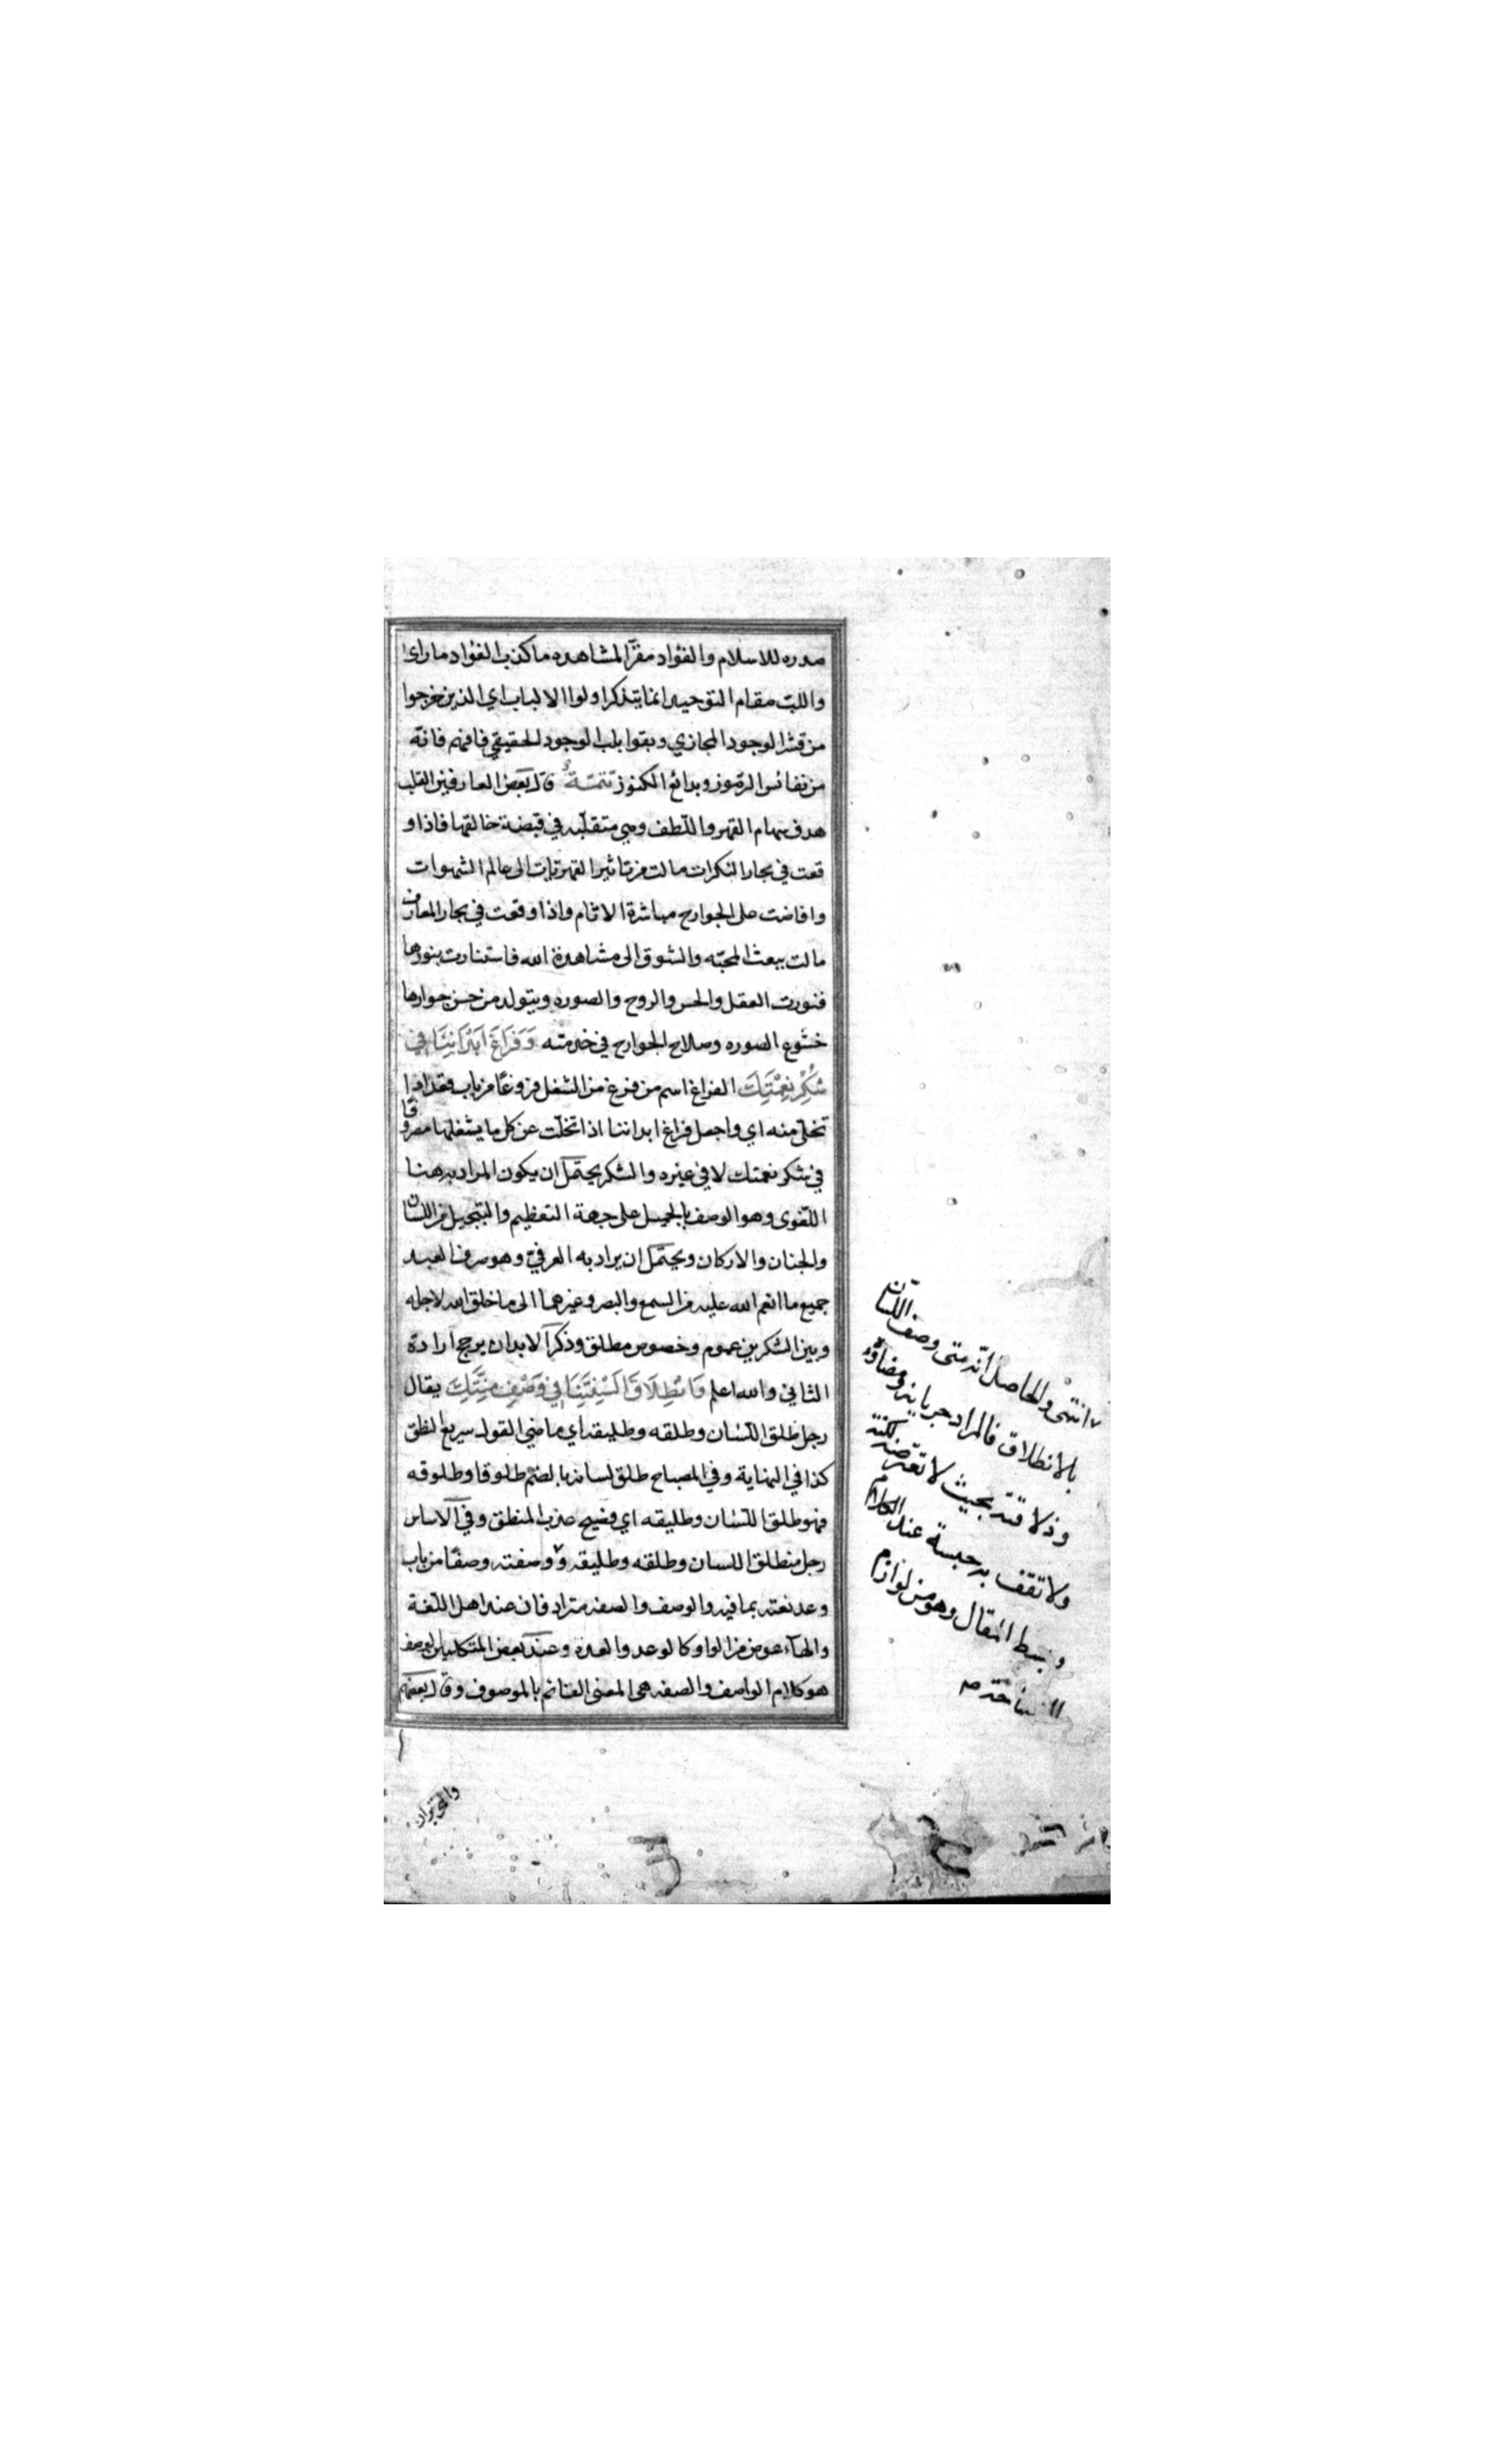 صدره للاسلام والفؤاد مقرّ المشاهده ماكذب الفؤاد ماراى
واللبّ مقام التوحيد انما يتذكر اولوا الالباب اي الذين خرجوا
من قشر الوجود المجازي وبقوا بلب الوجود الحقيقي فافهم فانه
من نفائس الرموز وبدائع الكنوز تتمّة قال بعض العارفين القلب
هدف سهام القهر واللطف وهي متقلّبه في قبضة خالقها فاذا و
قعت في بحار النكرات مالت من تاثير القهريّات الى عالم الشهوات
وافاضت على الجوارح مباشرة الاثام واذا وقعت في بحار المعارف
مالت ببعث المحبّه والشوق الى مشاهدة الله فاستنارت بنورها
فنورت العقل والحس والروح والصوره ويتولد من حسن جوارها
خشوع الصوره وصلاح الجوارح في خدمته وَفَرَاغَ اَبْدَانِنَا فِي
شُكْرِ نِعْمَتِكَ الفراغ اسم من فرغ من الشغل فروغًا من باب قعد اذا
تخلّى منه اي واجعل فراغ ابداننا اذا تخلّت عن كل ما يشغلها مصروفا
في شكر نعمتك لا في غيره والشكر يحتمل ان يكون المراد به هنا
اللّغوى وهو الوصف بالجميل على جهة التعظيم والتبجيل من اللسان
والجنان والاركان ويحتمل ان يراد به العرفيّ وهو صرف العبد
جميع ما انعم الله عليه من السمع والبصر وغيرهما الى ما خلق الله لاجله
وبين الشكرين عموم وخصوص مطلق وذكر الابدان يرجح ارادة
الثاني والله اعلم وَانْطِلَاقَ اَلْسِنَتِنَا فِي وَصْفِ مِنَّتِكَ يقال
رجل طلق اللسان وطلقه وطليقه اي ماضي القول سريع النطق
كذا في النهاية وفي المصباح طلق لسانه بالضم طلوقا وطلوقه
فهو طلق اللسان وطليقه اي فصيح عذب المنطق وفي الاساس
رجل منطلق اللسان وطلقه وطليقه ٧ ووصفته وصفًا من باب
وعد نعته بما فيه والوصف والصفه مترادفان عند اهل اللّغة
والهاء عوض من الواو كالوعد والعده وعند بعض المتكلمين الوصف
هو كلام الواصف والصفه هي المعنى القائم بالموصوف وقال بعضهم
٧ انتهى والحاصل انّه متى وصف اللسان
بالانطلاق فالمراد جريانه ومضاؤه
وذلاقته بحيث لا تعترضه لكنة
ولا تقف به حبسة عند الكلام
وبسط المقال وهو من لوازم